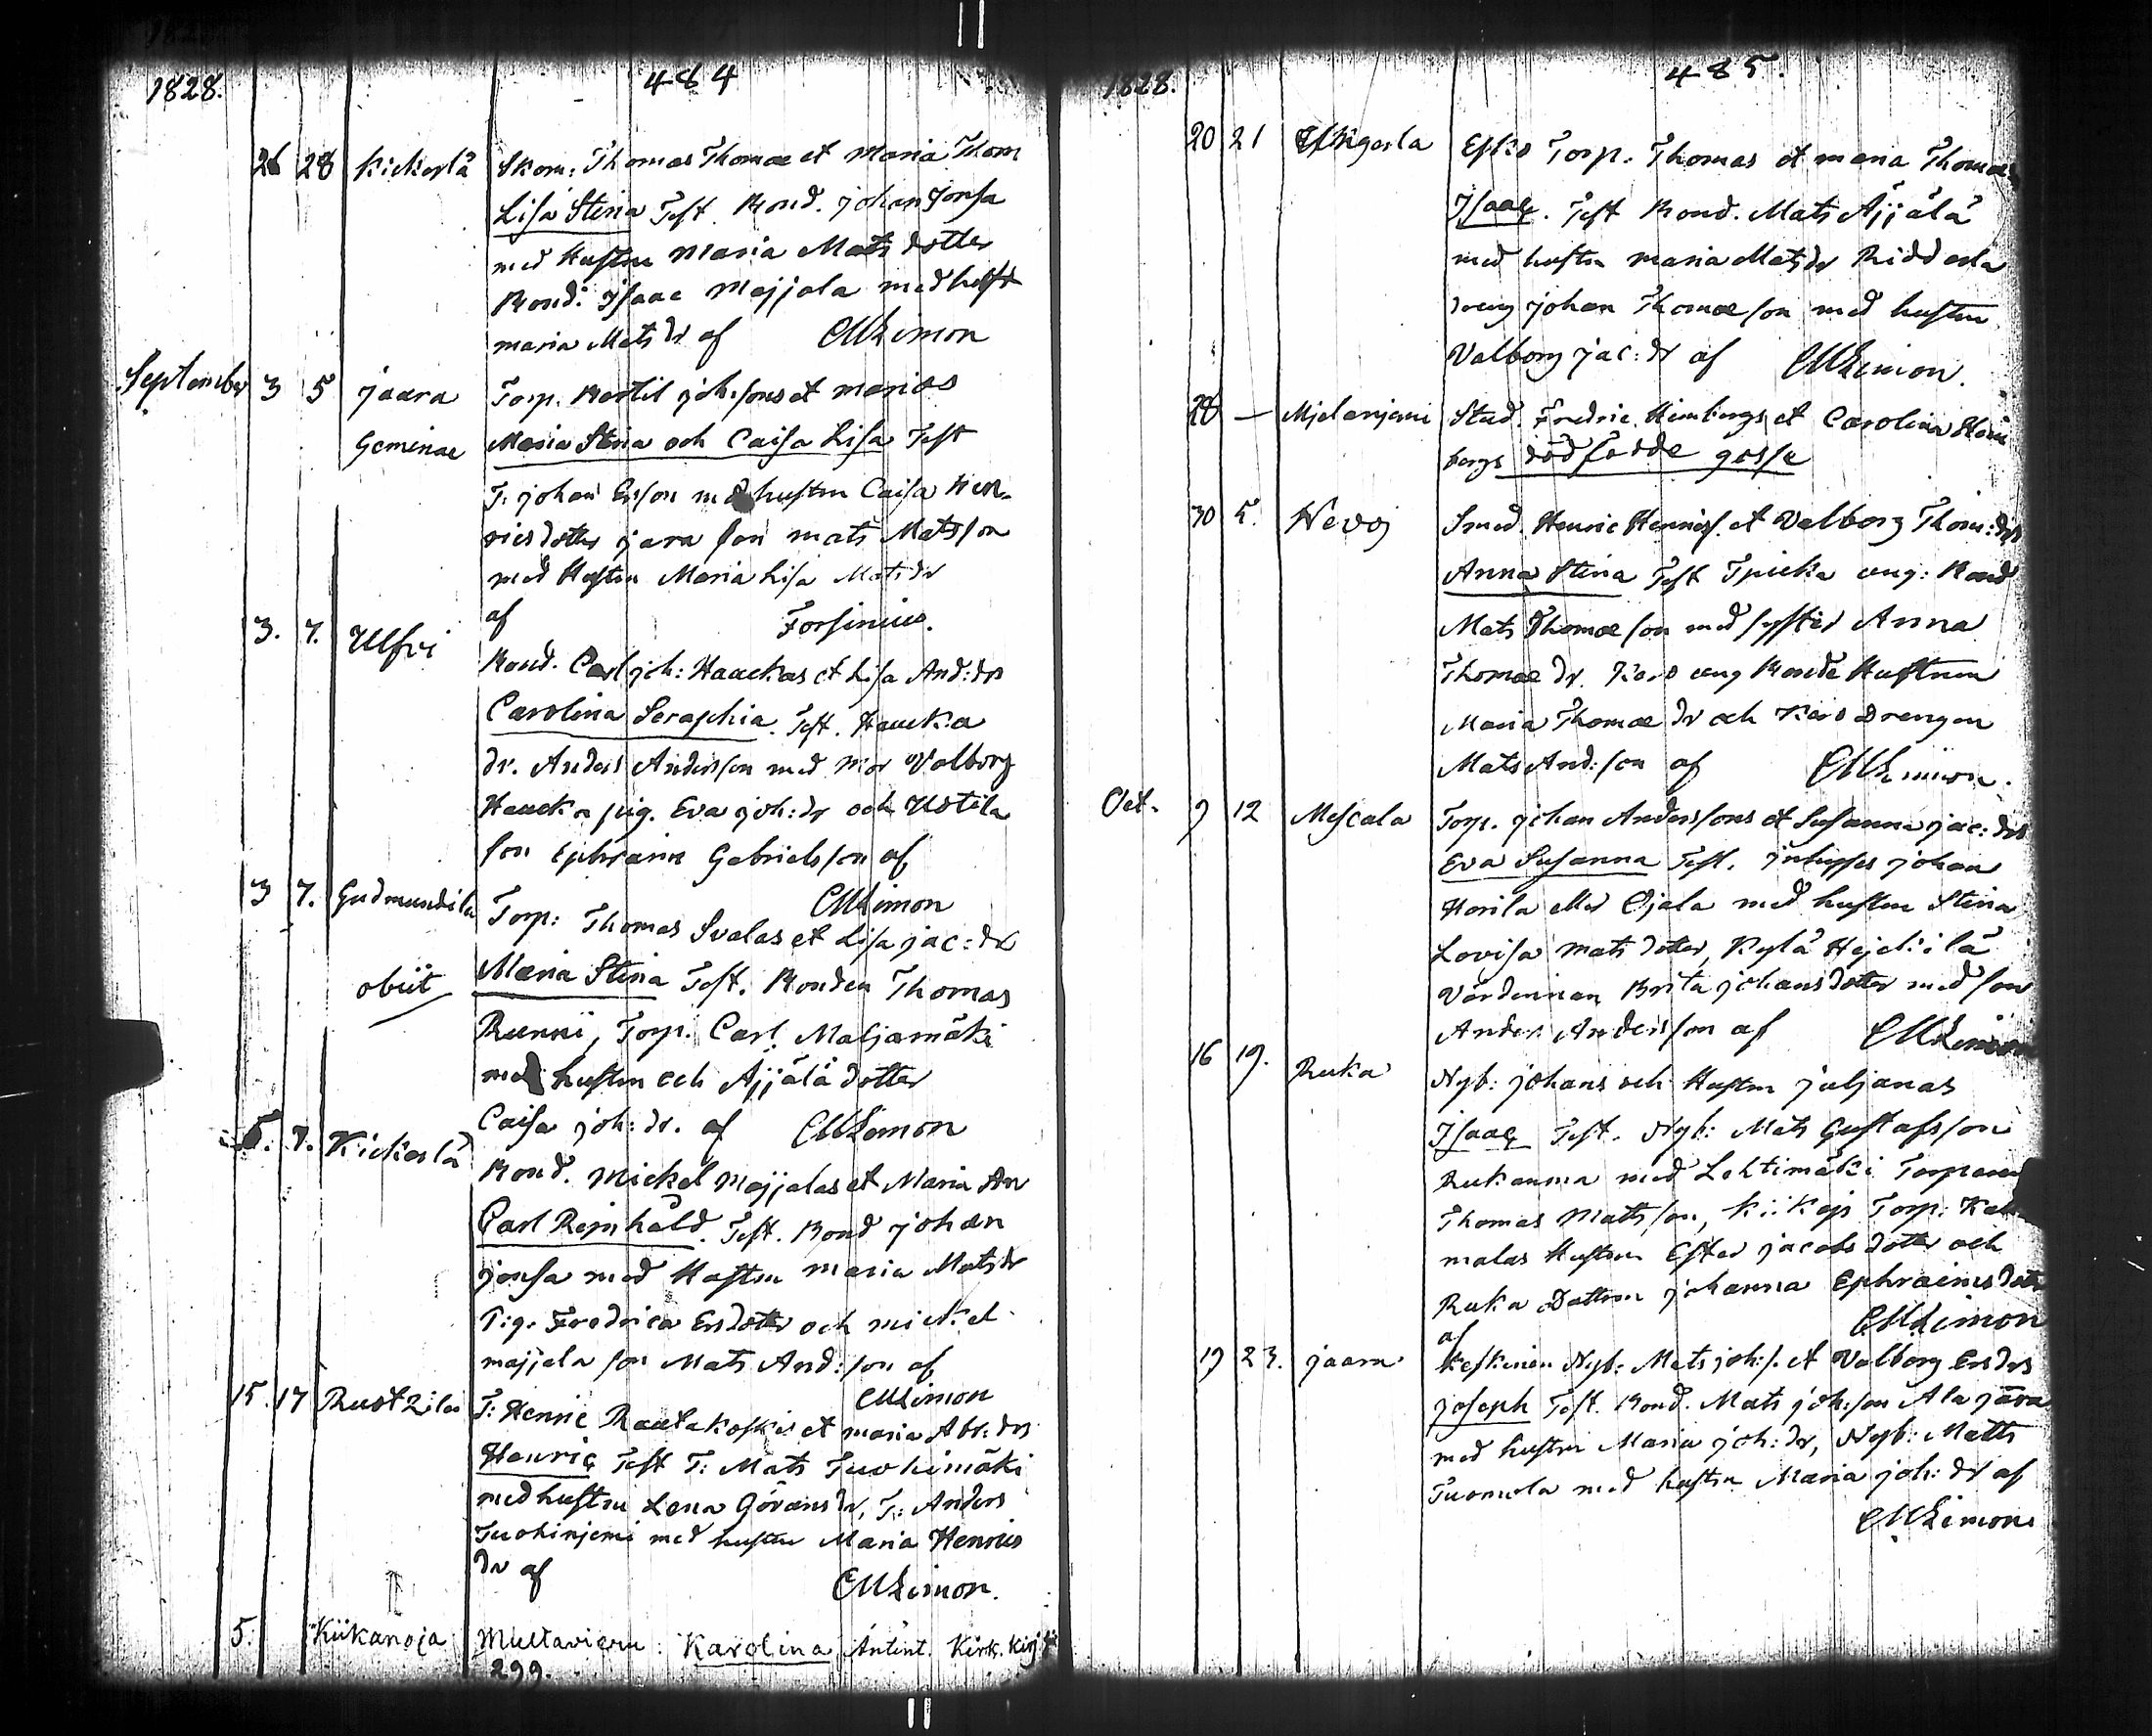 1828. 484
26 28 Kickerlä Skom: Thomas Thomae et Maria Thom
Lisa Stina Test Bond. Johan Jonsa
med Hustru Maria Mats dotter
Bond: Isaac Majjala med hust
Maria Mats dr af CMLimon
September 3 5 Jaara Torp. Bertil Joh:sons et Marias
Geminae Maria Stina och Caisa Lisa Test
T: Johan Erson med hustru Caisa Hen-
ricsdotter Jara son Mats Matsson
med Hustru Maria Lisa Mats dr
af Forsinius.
3. 7. Ulfvi Bond. Carl Joh: Hauckas et Lisa And:drs
Carolina Seraphia. Test. Haucka
dr. Anders Andersson med mor Valborg
Haucka pig. Eva Joh:dr och Ustila
son Ephraim Gabrielsson af
CMLimon
3 7. Gudmundila Torp: Thomas Svalas et Lisa Jac:dr
obiit Maria Stina Test. Bonden Thomas
Runni, Torp. Carl Maljamäki
med hustru och Äijälä dotter
Caisa Joh:dr. af CMLimon
5. 7. Kickerlä Bond. Mickel Majjalas et Maria An
Carl Reinhåld. Test. Bond Johan
Jonsa med Hustru Maria Matsdr
Pig. Fredrica Ersdotter och Mickel
Majjala son Mats And:son af
CMLimon
15. 17 Rustzila T: Henric Rautakoskis et Maria Abr:drs
Henric Test T: Mats Tuohimäki
med hustru Lena Görans dr, T: Anders
Tuohinjemi med hustru Maria Henrics
dr af
CMLimon.
5. Kiikanoja Multavieru: Karolina Antent. Kirk. Kirj
299.
1828. 485.
20 21 Torp. Thomas et Maria Thomae
Isaac. Test Bond. Mats Äjjälä
med hustru Maria Matsdr Ridderla
dreng Johan Thomae son med hustru
Valborg Jac:dr af CMLimon.
28 — Mjelanjemi Stud. Fredric Heimbergs et Carolina Heim
bergs dödfödde gosse
30 5. Nevoj Smed Henric Henrics. et Valborg Thom:drs
Anna Stina Test ung: Bond
Mats Thomae son med syster Anna
Thomae dr. ung Bonde Hustrun
Maria Thomae dr och Drengen
Mats And:son af CMLimon.
Oct. 9 12 Mescala Torp. Johan Anderssons et Susanna Jac:drs
Eva Susanna Test. Johan
eller Ojala med hustru Stina
Lovisa Mats dotter, Kylä Hejckilä
Värdinnan Brita Johansdotter med son
Anders Andersson af CMLimon
16 19. Ruka Nyb: Johans och Hustru Juljanas
Isaac Test. Nyb: Mats Gustafsson
med Lehtimäki Torparen
Thomas Matsson, Torp:
malas Hustru Ester Jacobs dotter och
Ruka Dottren Johanna Ephraims dotr
af CMLimon
19 23. Jaara Keskinen Nyb: Mats Joh:s. et Valborg Ersdrs
Joseph Test. Bond. Mats Joh:son Ala Jara
med hustru Maria Joh:dr, Nyb: Matts
Tuomola med hustru Maria Joh:dr af
CMLimon